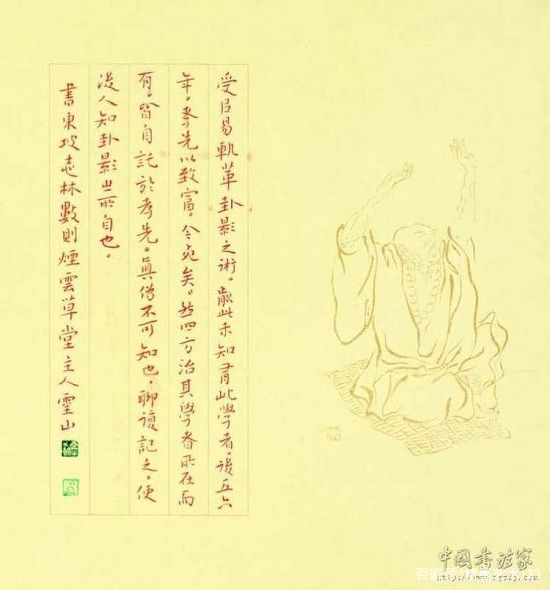 受㠯易軌革卦影之術。歬此未知有此學者,後五六
年。孝先以致富。今死矣。然四方治其學者所在而
有。皆自託於孝先。真偽不可知也,聊復記之,使
後人知卦影之所自也。
書東坡志林數則煙雲草堂主人山
中國书法家
百家号/